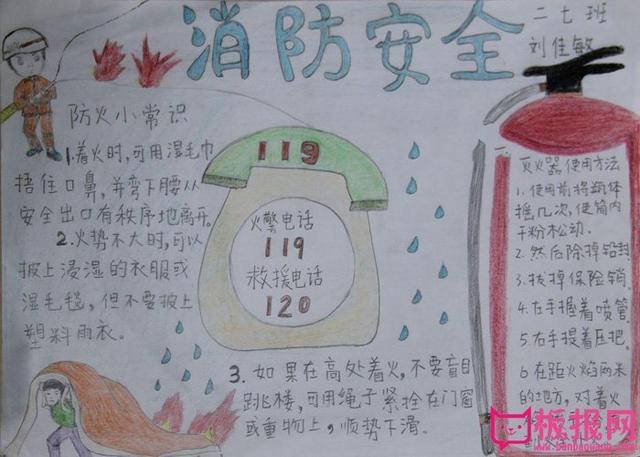 消防安全
二七班
刘佳敏
防火小常识
1.着火时,可用湿毛巾
捂住口鼻,并弯下腰从
安全出口有秩序地离开。
2.火势不大时,可以
披上浸湿的衣服或
湿毛毯,但不要披上
塑料雨衣。
119
火警电话
119
救援电话
120
3.如果在高处着火,不要盲目
跳楼,可用绳子紧拴在门窗
或重物上,顺势下滑。
一、灭火器使用方法
1.使用前将瓶体
摇几次,使筒内
干粉松动。
2.然后除掉铅封
3.拔掉保险销
4.左手握着喷管
5.右手提着压把
6在距火焰两米
的地方,对着火
板报网